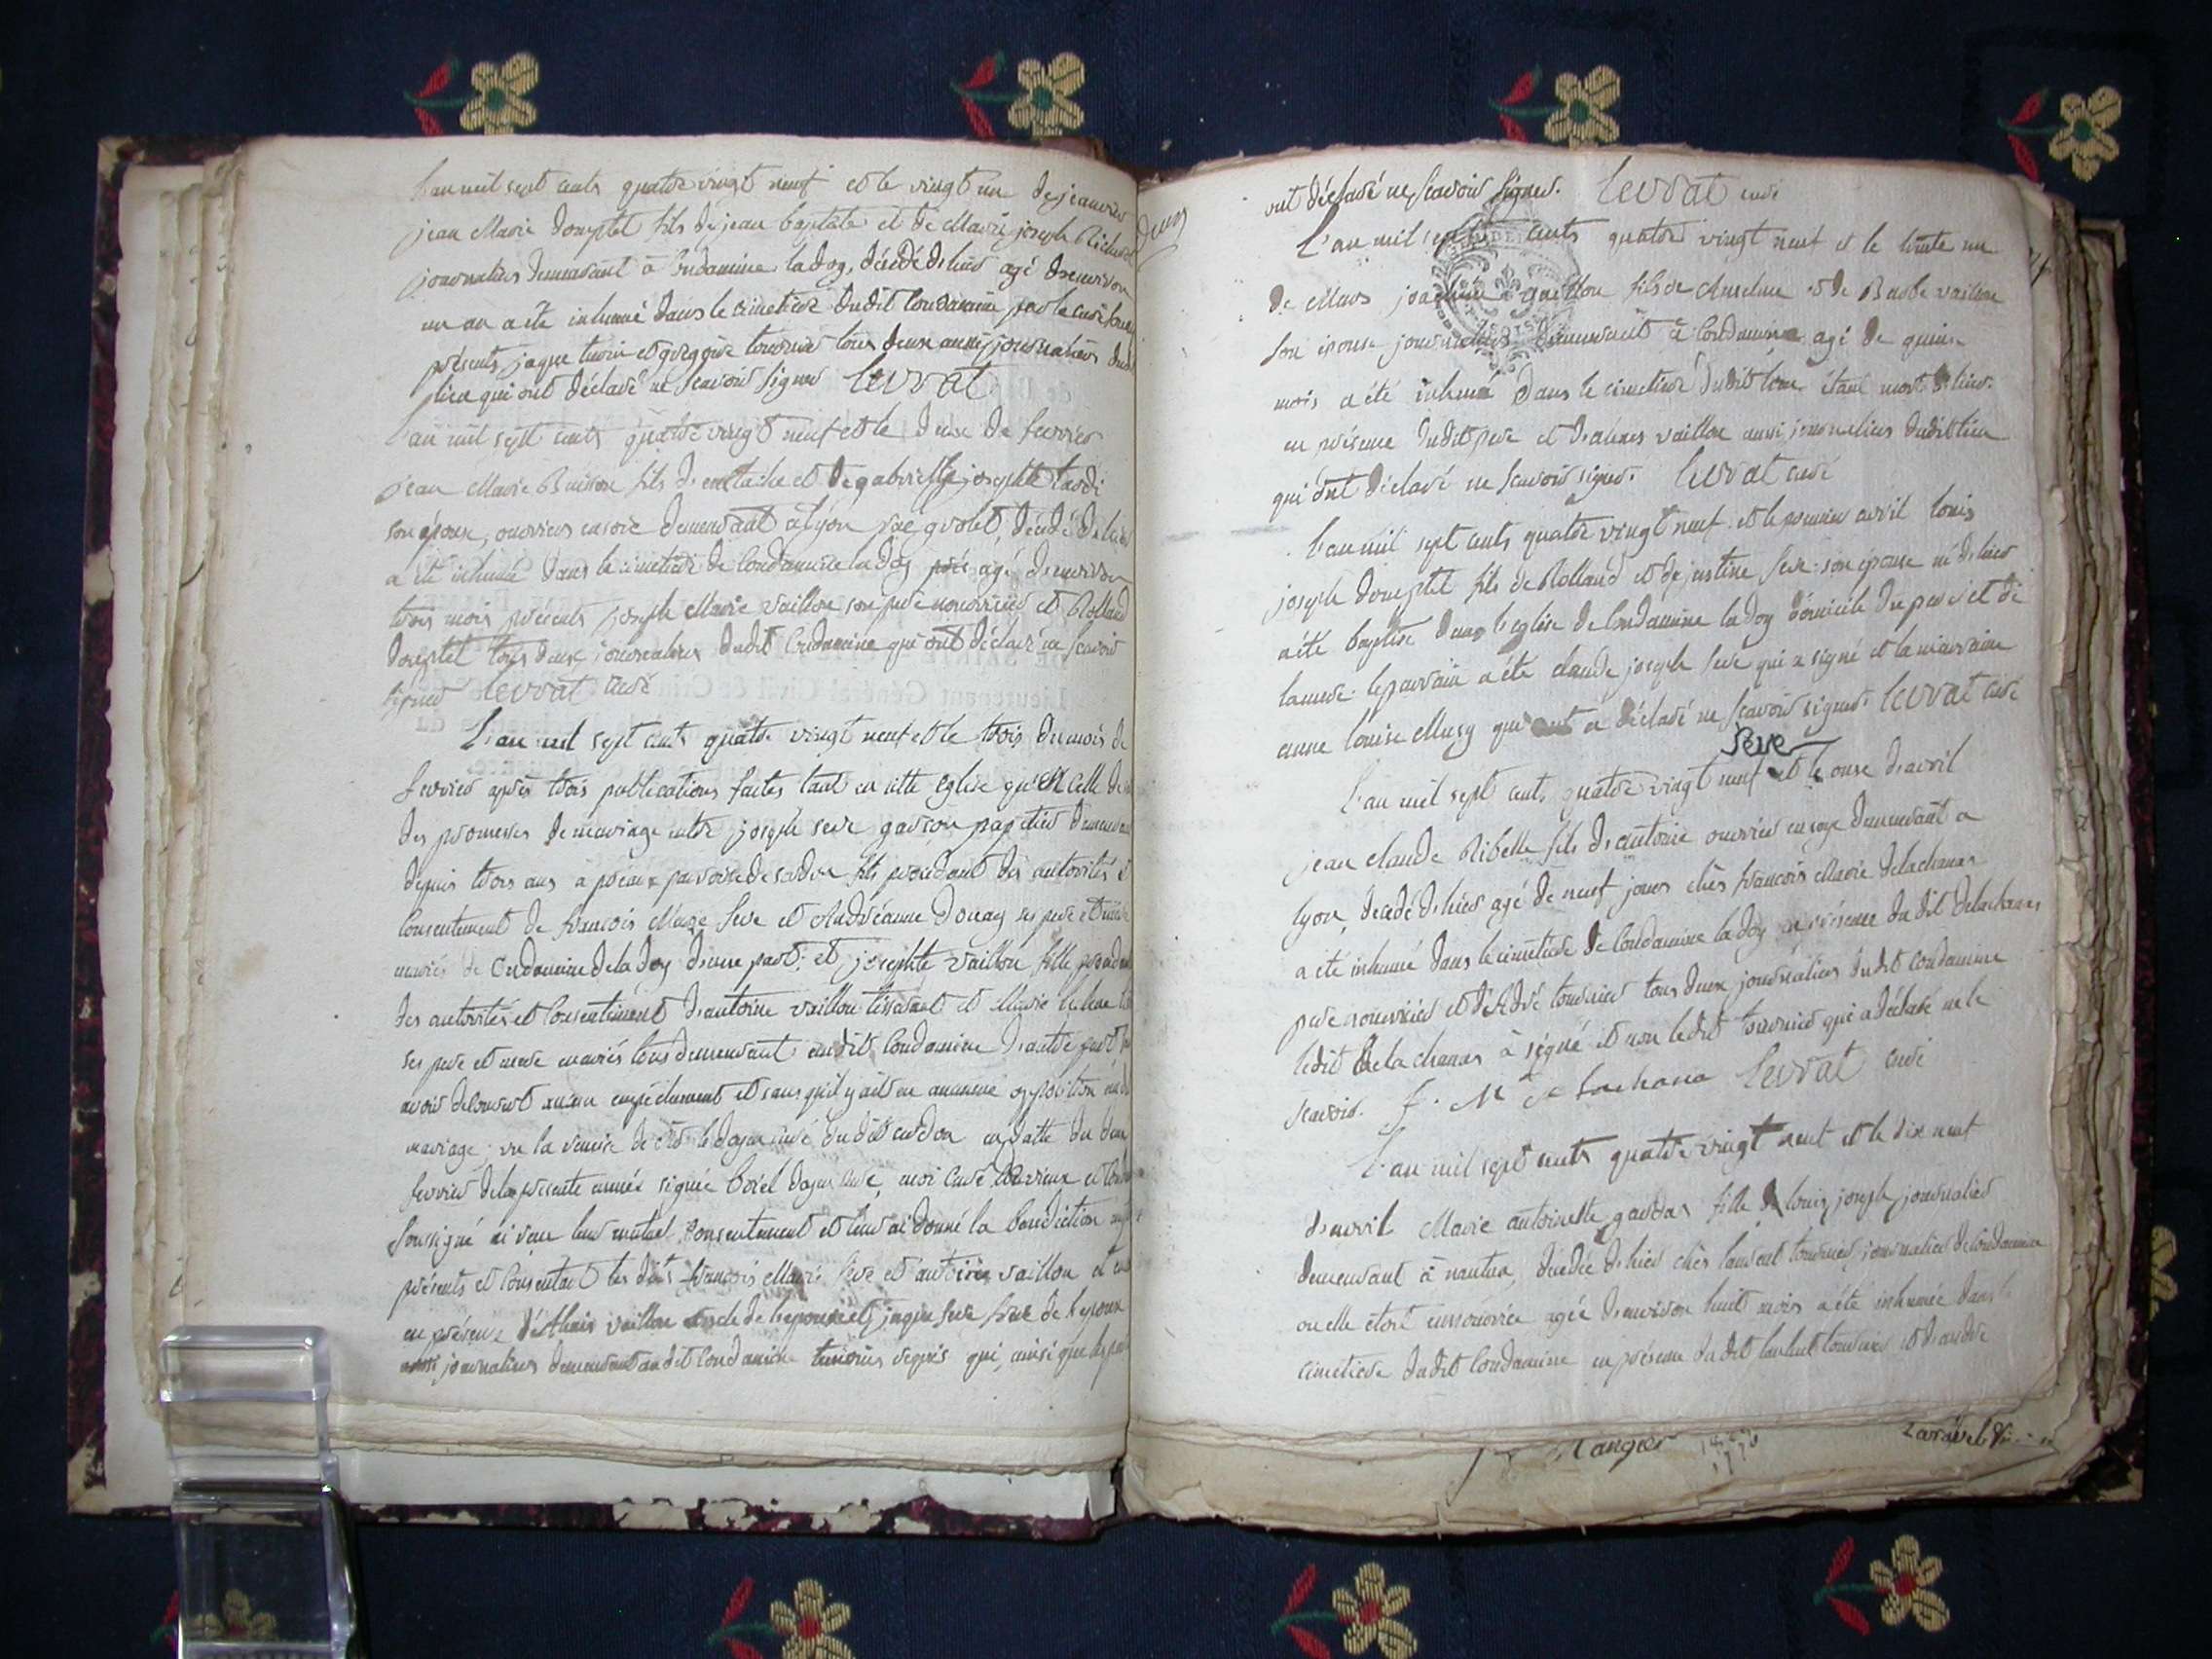 L'an mil sept cents quatre vingt neuf et le vingt un de jeanvier
jean Marie Domptet fils de jean baptiste et de Marie joseph Richerot
journaliers demeurant à Condamine la doy, décédé d'hier agé d'environ
un an a été inhumé dans le cimetiere dudit Condamine par le curé
présents jaque et gregoire tournier tous deux aussi journaliers dudit
lieu qui ont déclaré ne scavoir signer levrat
L'an mil sept cents quatre vingt neuf et le deux de fevrier
jean Marie Buisson fils d'eustache et de gabrielle josephte tardi
son épouse, ouvriers en soie demeurant à lyon décédé d'hier
a été inhumé dans le cimetiere de Condamine la doy agé d'environ
trois mois présents joseph Marie vaillon son pere nourricier et Rolland
Domptet tous deux journaliers dudit Condamine qui ont déclaré ne scavoir
signer levrat curé
L'an mil sept cents quatre vingt neuf et le trois du mois de
fevrier après trois publications faites tant en cette eglise qu'en celle de
des promesses de mariage entre joseph seve garçon papetier demeurant
depuis trois ans a paroisse de cerdon fils procedant des autorités et
consentement de francois Marie seve et Andréanne Donay ses pere et mere
mariés de Condamine de la doy d'une part; et josephte vaillon fille procedant
des autorités et consentement d'antoine vaillon tisserant et Marie
ses pere et mere mariés tous demeurant audit Condamine d'autre part
avoir découvert aucun empéchement et sans qu'il y ait eu aucune opposition
mariage; vu la remise de le doyen curé dudit cerdon en datte du deux
fevrier de la présente année signée borel doyen curé, moi curé
soussigné ai reçu leur mutuel consentement et leur ai donné la benediction
présents et consentant les dits francois Marie seve et antoine vaillon et
en présence d'Alexis vaillon oncle de l'epouse et jaque seve frere de l'epoux
aussi journaliers demeurant audit Condamine temoins requis qui, ainsi que les
ont déclaré ne scavoir signer. levrat curé
L'an mil sept cents quatre vingt neuf et le trente un
de Mars joachim vaillon fils de Anselme et de Barbe vaillon
son épouse journaliers demeurant à Condamine agé de quinze
mois a été inhumé dans le cimetiere dudit lieu étant mort d'hier
en présence dudit pere et d'alexis vaillon aussi journaliers dudit lieu
qui ont déclaré ne scavoir signer. levrat curé
L'an mil sept cents quatre vingt neuf et le premier avril louis
joseph Domptet fils de Rolland et de justine seve son épouse né d'hier
a été baptisé dans l'eglise de Condamine la doy domicile du pere et de
la mere. le parrain a été claude joseph seve qui a signé et la marraine
anne louise Musy qui a déclaré ne scavoir signer. levrat curé
Seve
L'an mil sept cents quatre vingt neuf et le onze d'avril
jean claude Ribelle fils d'antoine ouvrier en soye demeurant a
lyon, decedé d'hier agé de neuf jours chès francois Marie delachanas
a été inhumé dans le cimetiere de Condamine la doy en présence du dit delachanas
pere nourricier et d'André tournier tous deux journaliers dudit Condamine
ledit delachanas à signé et non ledit tournier qui a déclaré ne le
scavoir. f. M delachana levrat curé
L'an mil sept cents quatre vingt neuf et le dix neuf
d'avril Marie antoinette fille de louis joseph journalier
demeurant à nantua, décédée d'hier chès laurent tournier, journalier de Condamine
ou elle étoit en nourrice agée d'environ huit mois a été inhumée dans le
cimetiere dudit Condamine en présence du dit laurent tournier et d'andré